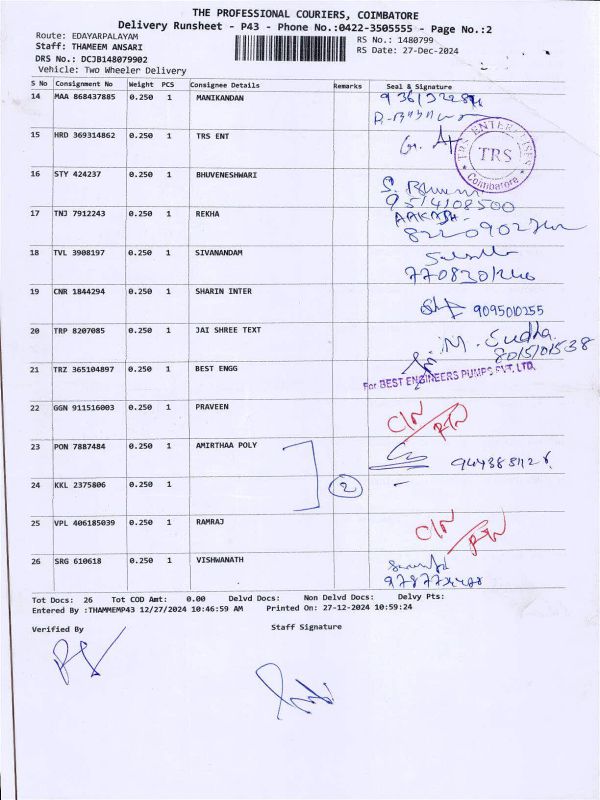 THE PROFESSIONAL COURIERS, COIMBATORE
Delivery Runsheet - P43 - Phone No.:0422-3505555 - Page No.:2
Route: EDAYARPALAYAM
RS No.: 1480799
Staff: THAMEEM ANSARI
RS Date: 27-Dec-2024
DRS No.: DCJB148079902
Vehicle: Two Wheeler Delivery
S No Consignment No Weight PCS Consignee Details Remarks Seal & Signature
14 MAA 868437885 0.250 1 MANIKANDAN
15 HRD 369314862 0.250 1 TRS ENT
TRS ENTERPRISES TRS Coimbatore
16 STY 424237 0.250 1 BHUVENESHWARI
9514108500
17 TNJ 7912243 0.250 1 REKHA AAKASH
18 TVL 3908197 0.250 1 SIVANANDAM
19 CNR 1844294 0.250 1 SHARIN INTER
20 TRP 8207085 0.250 1 JAI SHREE TEXT M. Sudha
21 TRZ 365104897 0.250 1 BEST ENGG
For BEST ENGINEERS PUMPS PVT. LTD.
22 GGN 911516003 0.250 1 PRAVEEN
23 PON 7887484 0.250 1 AMIRTHAA POLY
24 KKL 2375806 0.250 1 2 -
25 VPL 406185039 0.250 1 RAMRAJ
26 SRG 610618 0.250 1 VISHWANATH
Tot Docs: 26 Tot COD Amt: 0.00 Delvd Docs: Non Delvd Docs: Delvy Pts:
Entered By :THAMMEMP43 12/27/2024 10:46:59 AM Printed On: 27-12-2024 10:59:24
Verified By Staff Signature